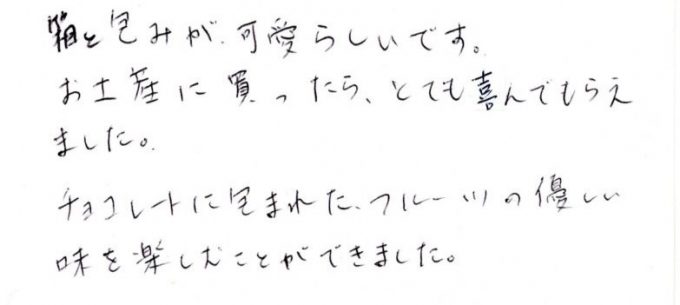 箱と包みが、可愛らしいです。
お土産に買ったら、とても喜んでもらえ
ました。
チョコレートに包まれた、フルーツの優しい
味を楽しむことができました。